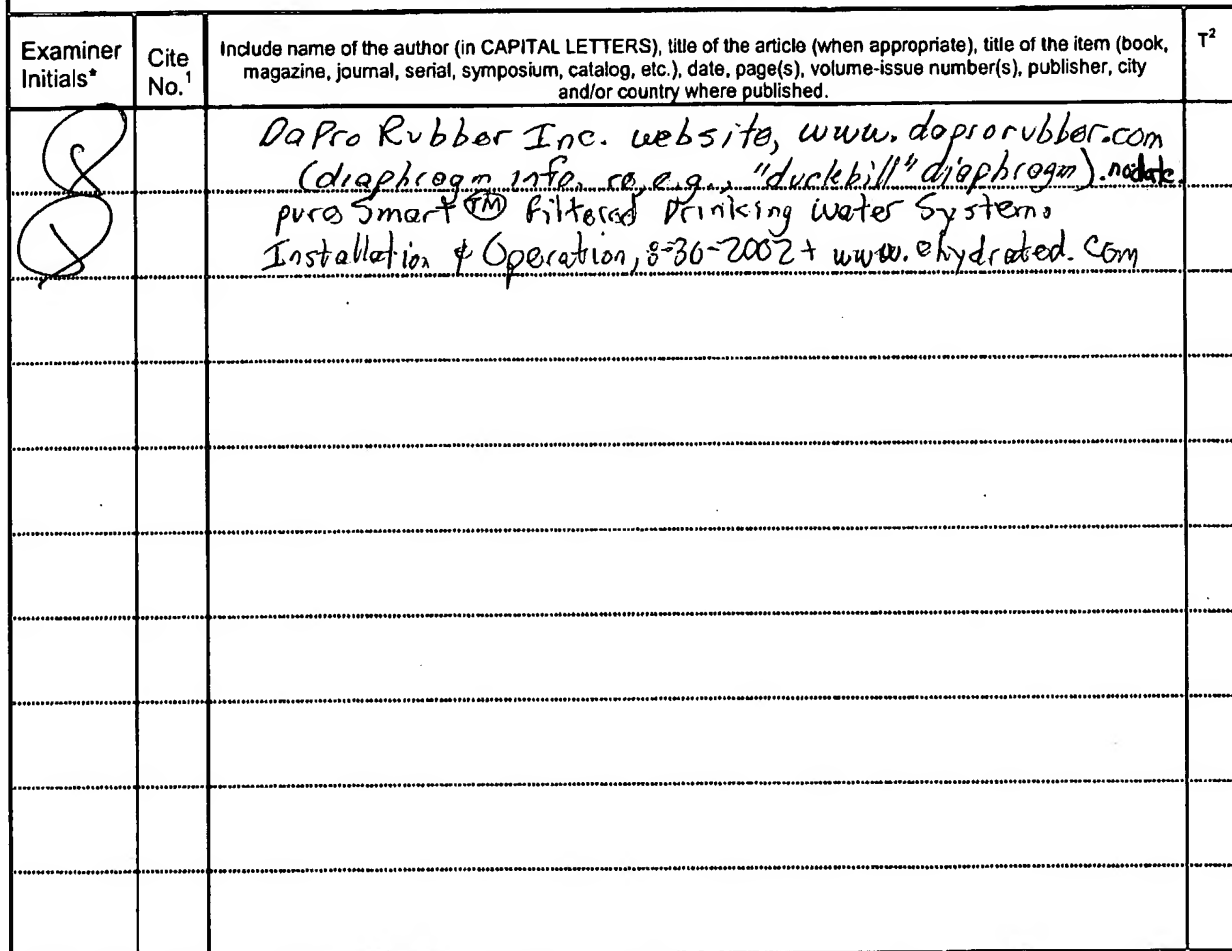 Examiner Initials* Cite No.¹ Include name of the author (in CAPITAL LETTERS), title of the article (when appropriate), title of the item (book, magazine, journal, serial, symposium, catalog, etc.), date, page(s), volume-issue number(s), publisher, city and/or country where published. T²
DaPro Rubber Inc. website, www.daprorubber.com
(diaphragm info, re, e.g., "duckbill" diaphragm). no date.
pure Smart TM Filtered Drinking Water System,
Installation & Operation, 8-30-2002 + www.ehydrated.com